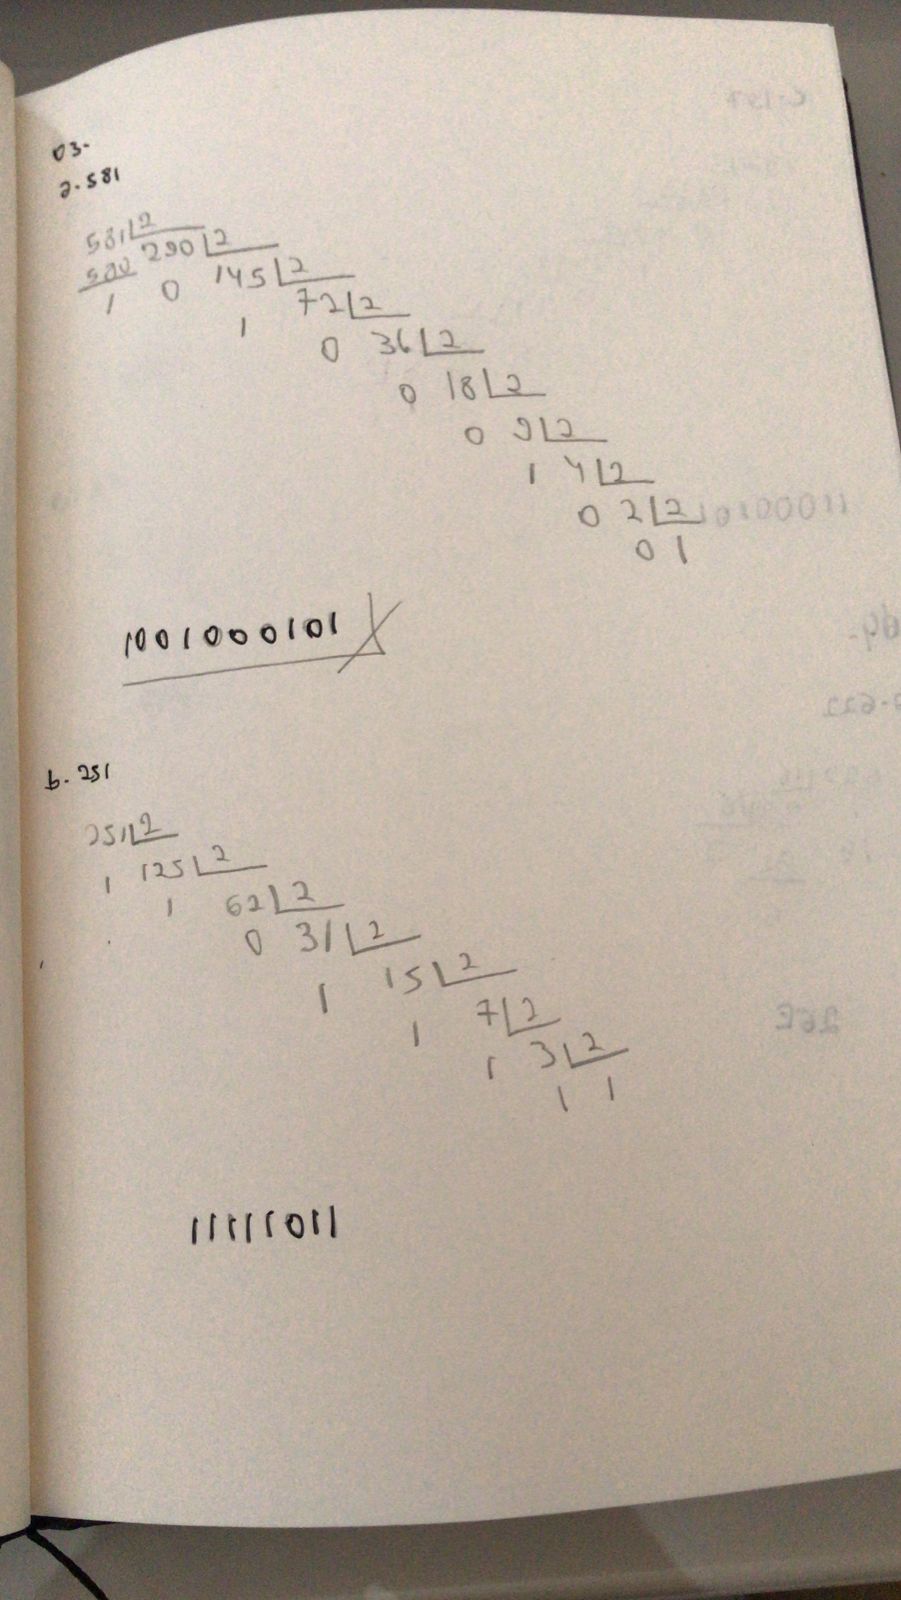 03-
a. 581
581 2
580 290 2
1 0 145 2
1 72 2
0 36 2
0 18 2
0 9 2
1 4 2
0 2 2
0 1
1001000101
b. 251
251 2
1 125 2
1 62 2
0 31 2
1 15 2
1 7 2
1 3 2
1 1
11111011